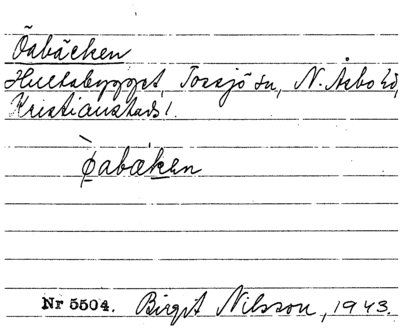 Öabäcken
Hultabygget, Tossjö sn, N. Åsbo hd,
Kristianstads l.
ǿabæken
Nr 5504. Birgit Nilsson, 1943.